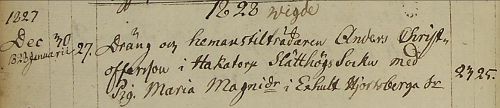 1827
1828 vigde
Dec 30
1828 Januarii
27. Dräng och hemmanstilträdaren Anders Christ-
offersson i Hakatorp Slätthögs Sockn med
Pig. Maria Magnidr i Exhult Hjortsberga Sn
23 25.